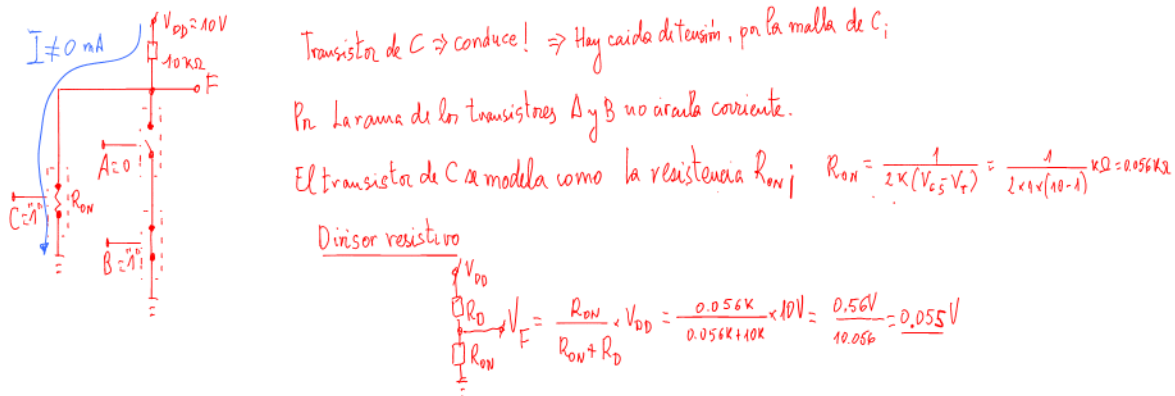 I≠0 mA
V_DD=10V
10KΩ
F
A=0
C="1"
R_ON
B="1"
Transistor de C ⇒ conduce! ⇒ Hay caida de tensión, por la malla de C;
Por La rama de los transistores A y B no circula corriente.
El transistor de C se modela como la resistencia R_ON; R_ON = 1/(2K(V_GS-V_T)) = 1/(2×1×(10-1)) KΩ=0.056KΩ
Divisor resistivo
V_DD
R_D
R_ON
V_F = R_ON/(R_ON+R_D) × V_DD = 0.056K/(0.056K+10K) ×10V = 0.56V/10.056 = 0.055V